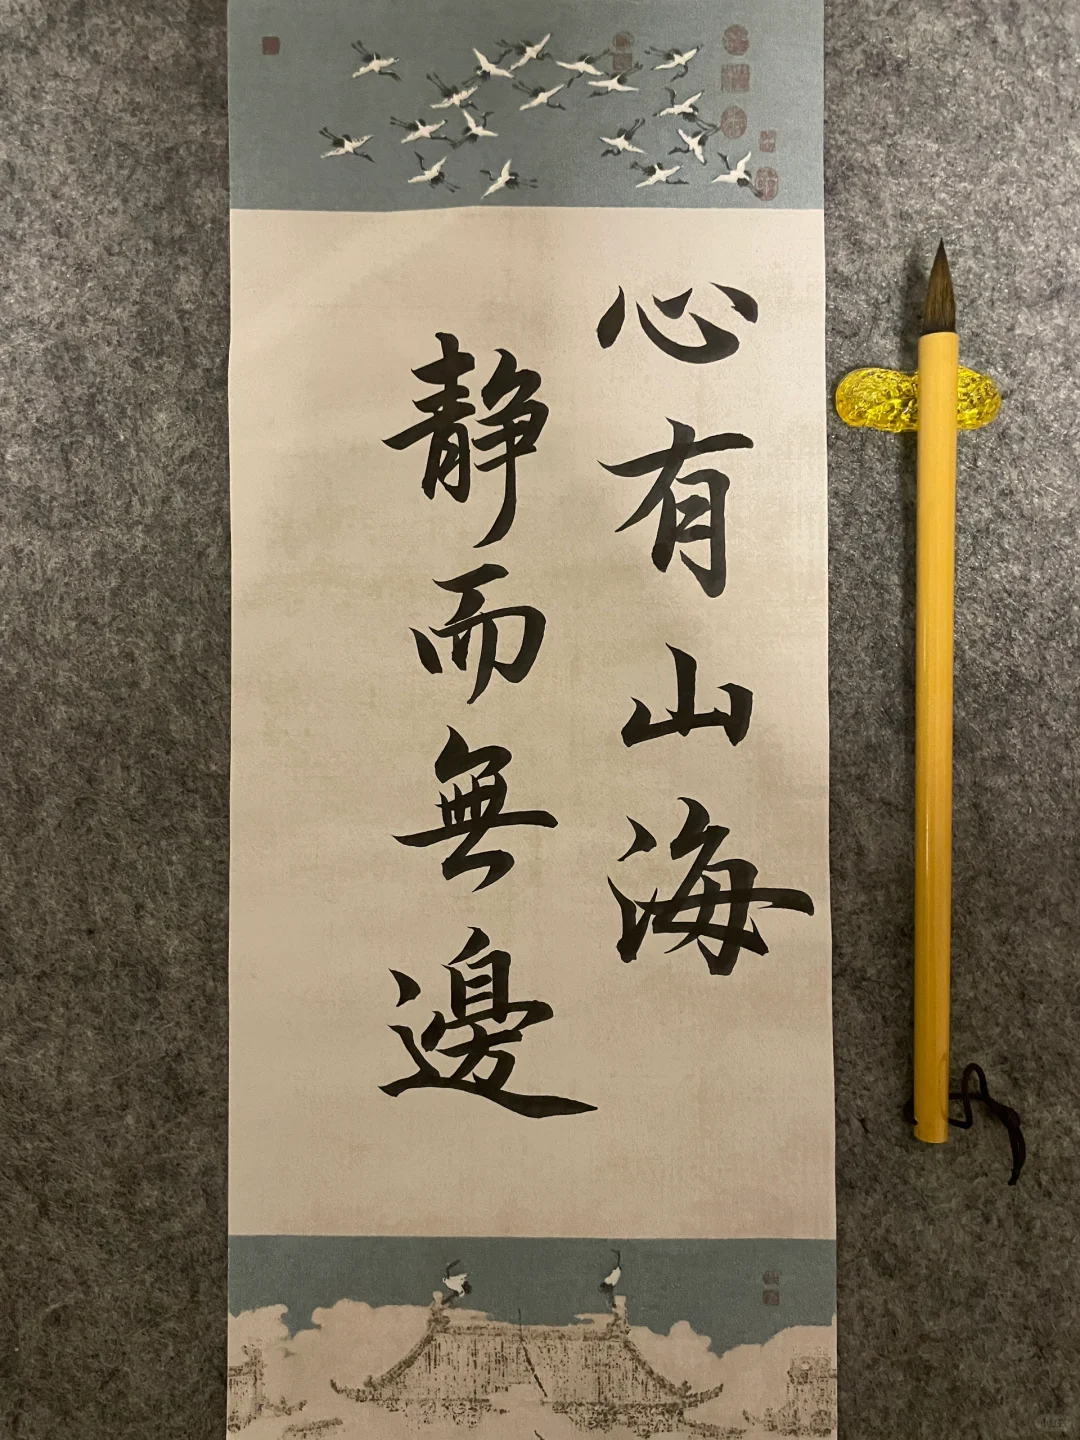 心有山海
静而無邊